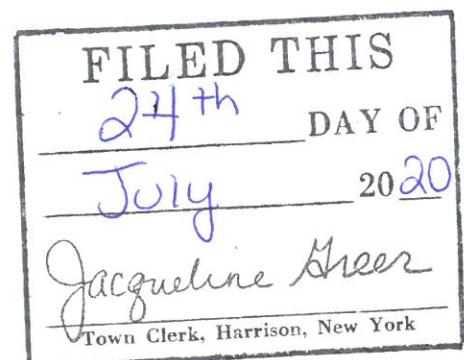 FILED THIS
24th DAY OF
July 2020
Jacqueline Greer
Town Clerk, Harrison, New York